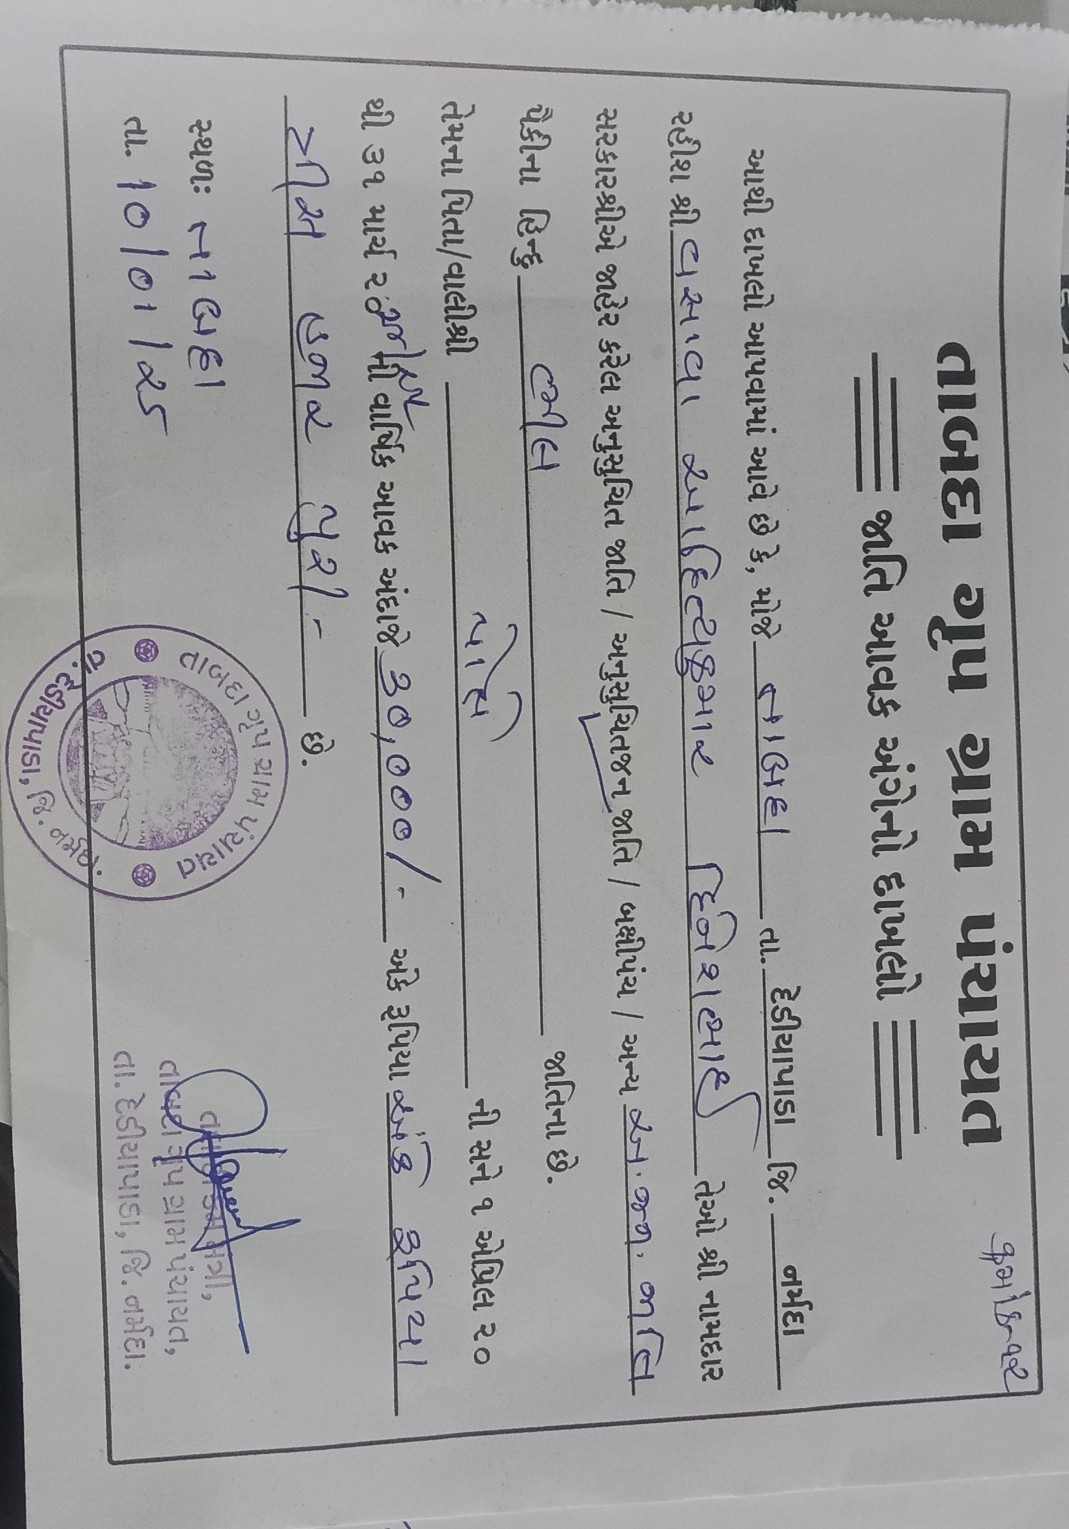 ક્રમાંક-૧૨
તાબદા ગ્રુપ ગ્રામ પંચાયત
જાતિ આવક અંગેનો દાખલો
આથી દાખલો આપવામાં આવે છે કે, મોજે તાબદા તા. દેડીયાપાડા જિ. નર્મદા
રહીશ શ્રી વસાવા આદિત્યકુમાર દિનેશભાઈ તેઓ શ્રી નામદાર
સરકારશ્રીએ જાહેર કરેલ અનુસુચિત જાતિ / અનુસુચિતજન જાતિ / બક્ષીપંચ / અન્ય અનુ. જન. જાતિ
પૈકીના હિન્દુ ભીલ જાતિના છે.
તેમના પિતા/વાલીશ્રી ની સને ૧ એપ્રિલ ૨૦
થી ૩૧ માર્ચ ૨૦ ની વાર્ષિક આવક અંદાજે 30,000/- અંકે રૂપિયા અંકે રૂપિયા
ત્રીસ હજાર પુરા- છે.
સ્થળ: તાબદા
તા. 10/01/25
તાબદા ગ્રુપ ગ્રામ પંચાયત
તા. દેડીયાપાડા, જિ. નર્મદા
તાબદા ગ્રુપ ગ્રામ પંચાયત,
તા. દેડીયાપાડા, જિ. નર્મદા.